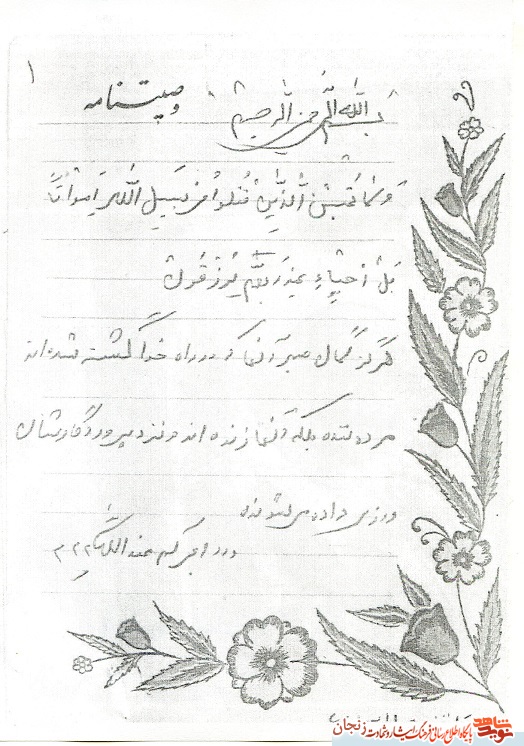 ۱
بسم الله الرحمن الرحیم
وصیتنامه
وَلا تَحسَبَنَّ الَّذینَ قُتِلُوا فی سَبیلِ اللهِ اَمواتاً
بَل اَحیاءٌ عِندَ رَبِّهِم یُرزَقُونَ
هرگز گمان مبر آنها که در راه خدا کشته شده اند
مرده شده بلکه آنها زنده اند و نزد پروردگارشان
روزی داده می شوند
عند الله
نوید شاهد
پایگاه اطلاع رسانی فرهنگ ایثار و شهادت زنجان